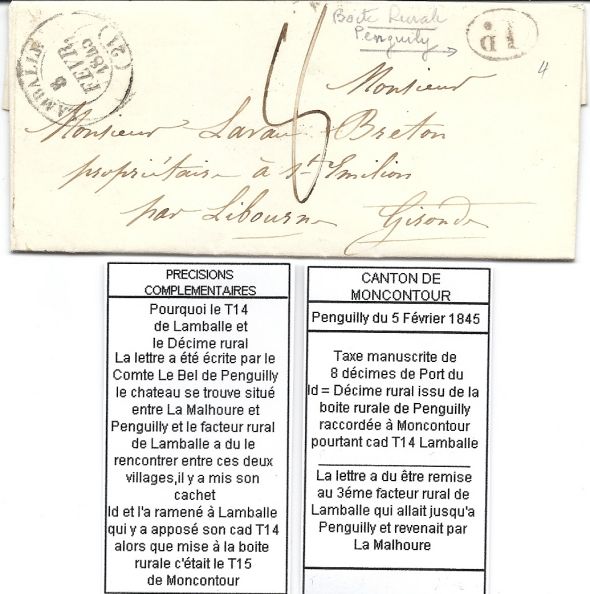 Boite Rurale
Penguily
1D
4
LAMBALLE
8
FEVR
1845
(21)
Monsieur
Monsieur Lavau Breton
propriétaire à St. Emilion
par Libourne Gironde
PRECISIONS
COMPLEMENTAIRES
Pourquoi le T14
de Lamballe et
le Décime rural
La lettre a été écrite par le
Comte Le Bel de Penguilly
le chateau se trouve situé
entre La Malhoure et
Penguilly et le facteur rural
de Lamballe a du le
rencontrer entre ces deux
villages,il y a mis son
cachet
Id et l'a ramené à Lamballe
qui y a apposé son cad T14
alors que mise à la boite
rurale c'était le T15
de Moncontour
CANTON DE
MONCONTOUR
Penguilly du 5 Février 1845
Taxe manuscrite de
8 décimes de Port du
Id = Décime rural issu de la
boite rurale de Penguilly
raccordée à Moncontour
pourtant cad T14 Lamballe
La lettre a du être remise
au 3éme facteur rural de
Lamballe qui allait jusqu'a
Penguilly et revenait par
La Malhoure